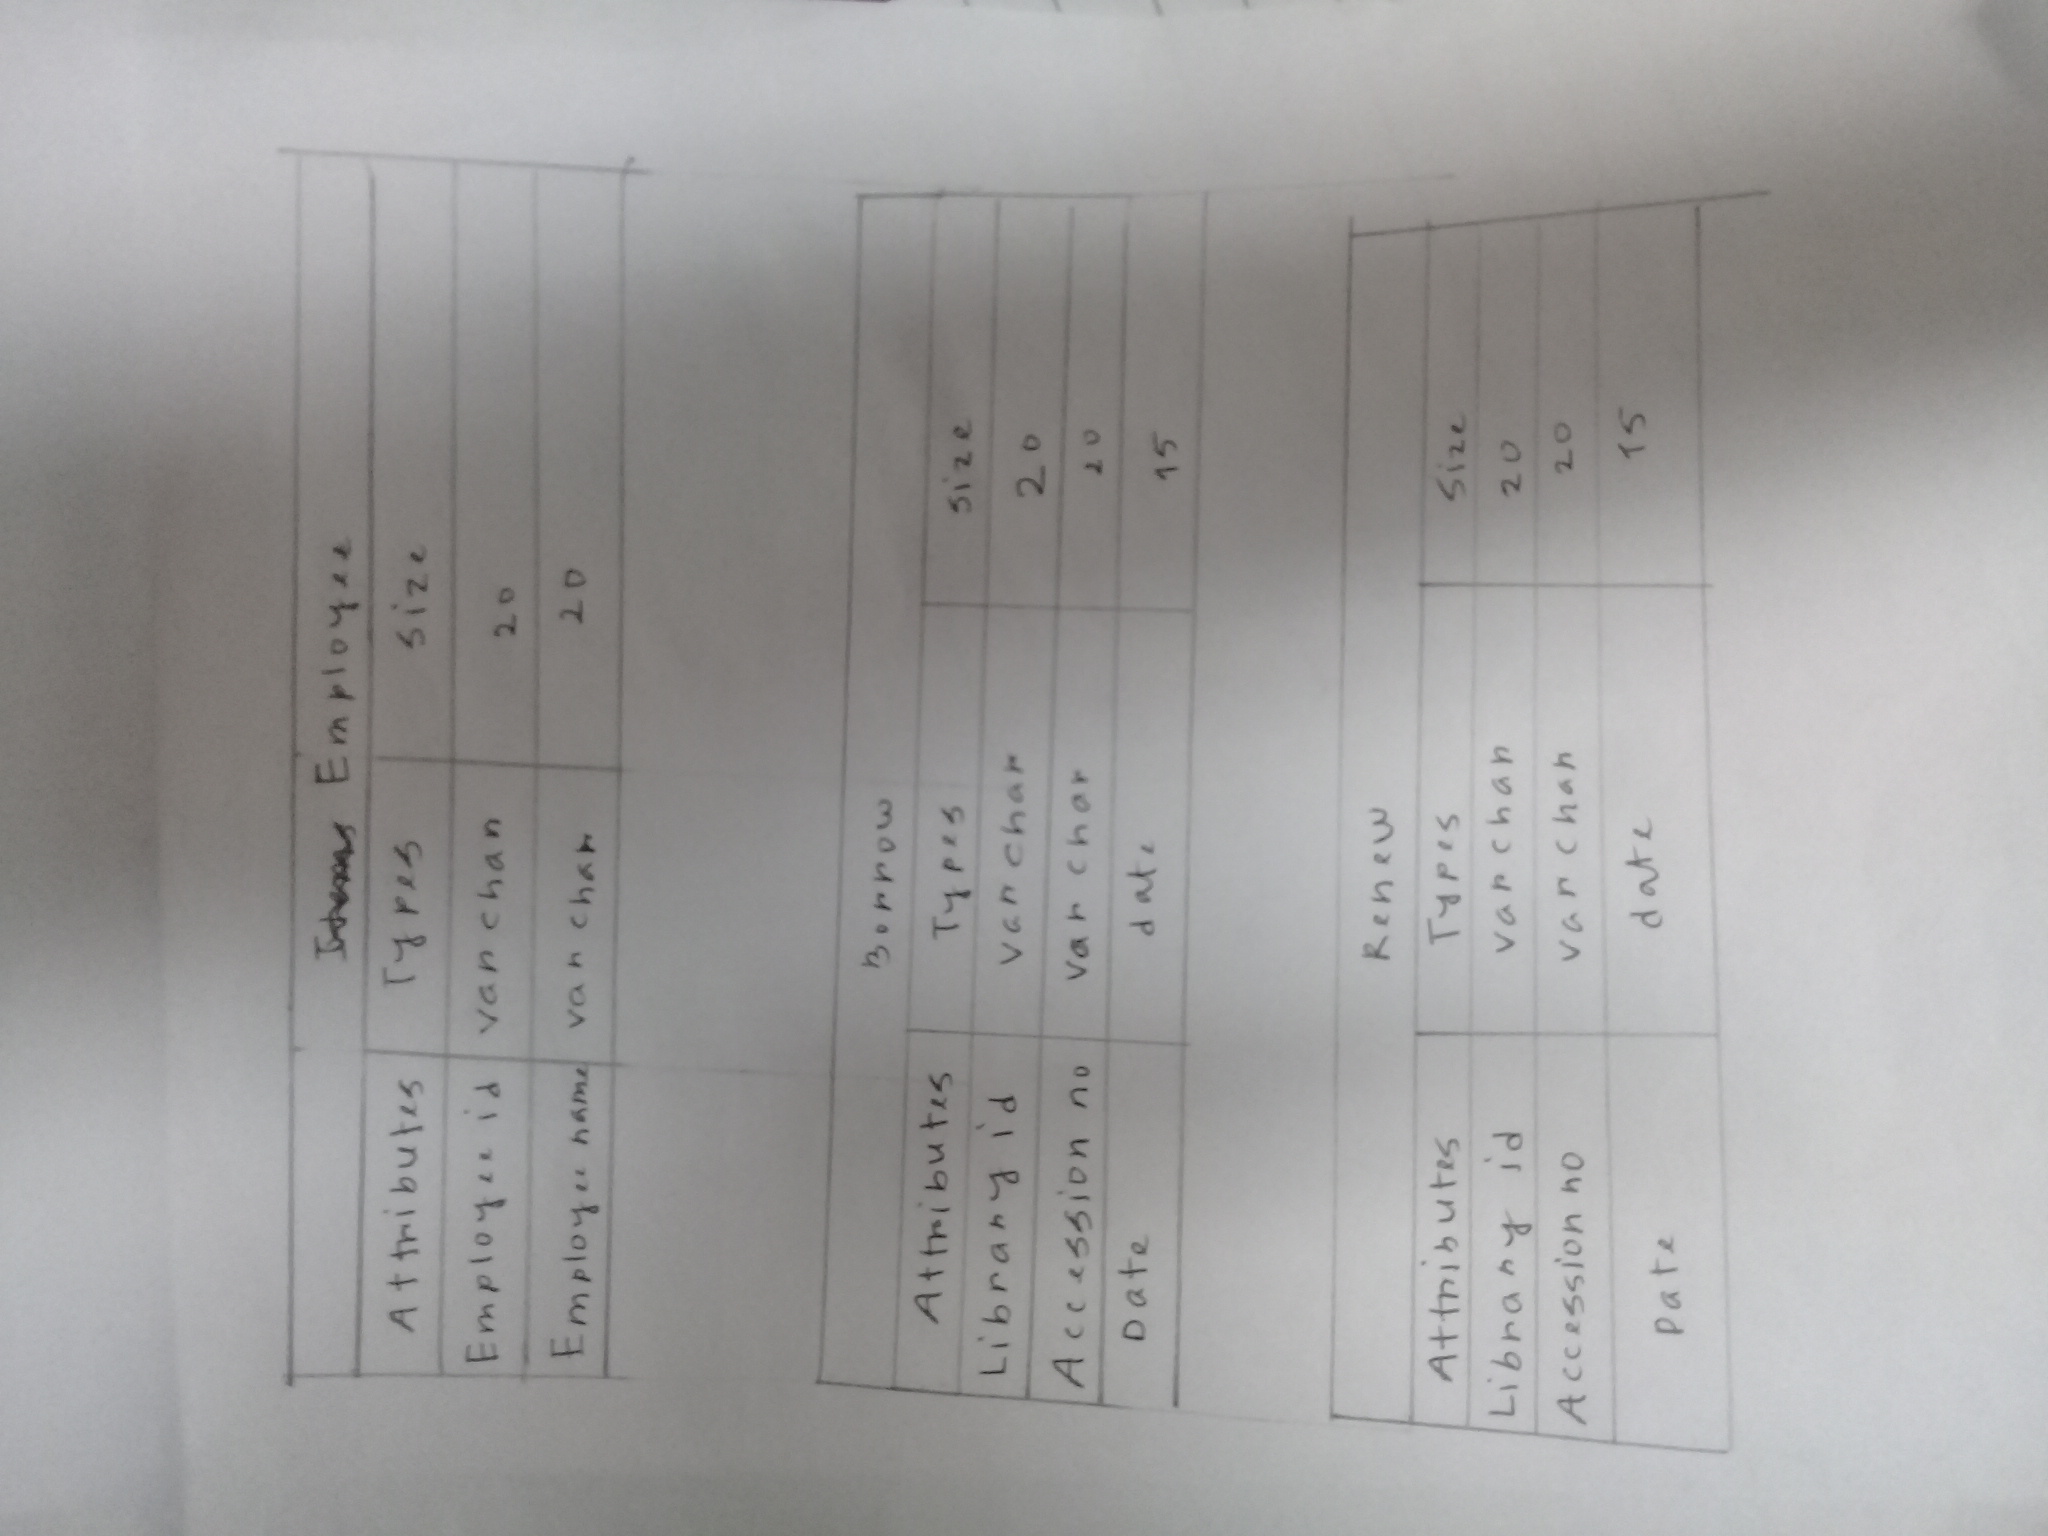 Items Employee
Attributes Types size
Employee id varchar 20
Employee name varchar 20
Borrow
Attributes Types size
Library id varchar 20
Accession no varchar 20
Date date 15
Renew
Attributes Types Size
Library id varchar 20
Accession no varchar 20
Date date 15